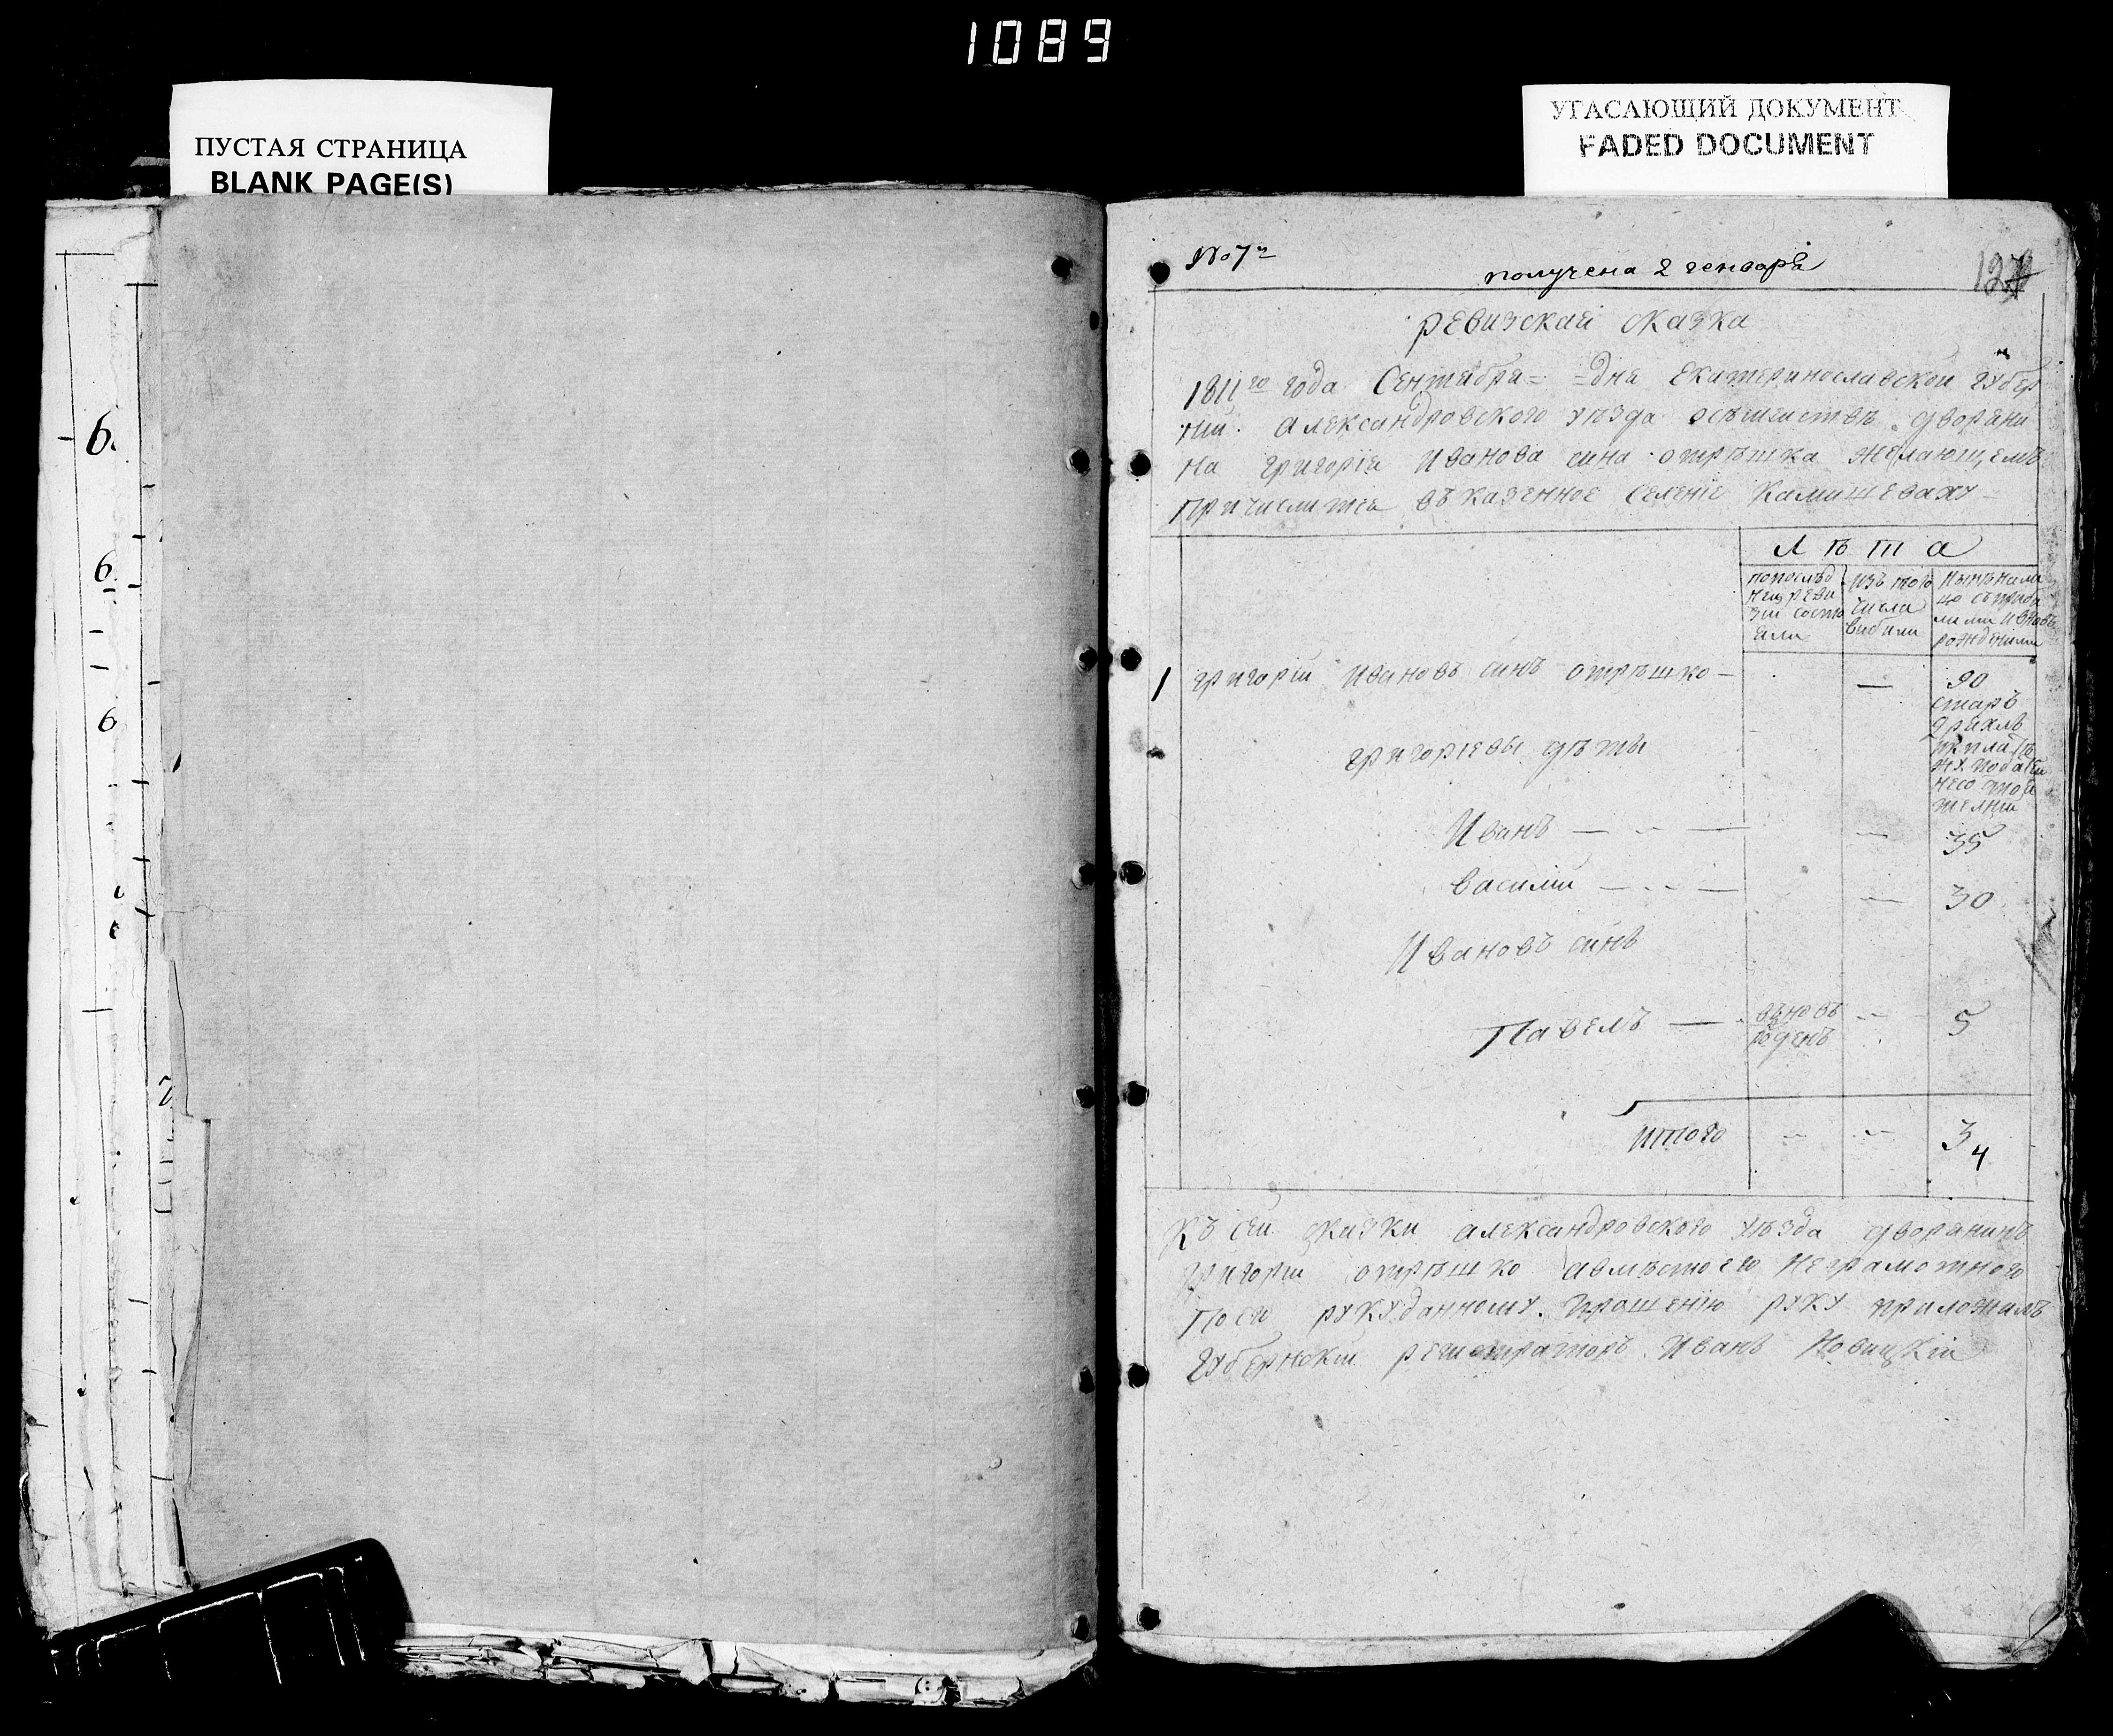 1089
ПУСТАЯ СТРАНИЦА
BLANK PAGE(S)
УГАСАЮЩИЙ ДОКУМЕНТ
FADED DOCUMENT
6.
6.
6
№ 7й
получена 2 генваря
ревизская сказка
1811го года Сентября = = дня Екатеринославской губер
нии александровского уезда дворяни
на григория Иванова сина отрѣшка желающемъ
причислится въ казенное селение Камишеваху
Лѣта
попослѣд
ней реви
зии состо
яли
изъ того
числа
вибили
рожденими
1 григорий Ивановъ синъ отрѣшко — — 90
старъ
дряхлъ
григориевы дѣты
Иванъ — — — 35
василий — — — 30
Ивановъ синъ
Павелъ — вновь роденъ — 5
итого — — 3
4
Къ сей скизки александровского уѣзда дворянинъ
григорий отрѣшко авмѣсто его Неграмотного
по его рукуданному прошению руку приложилъ
губернский регистраторъ Иванъ Новицкий